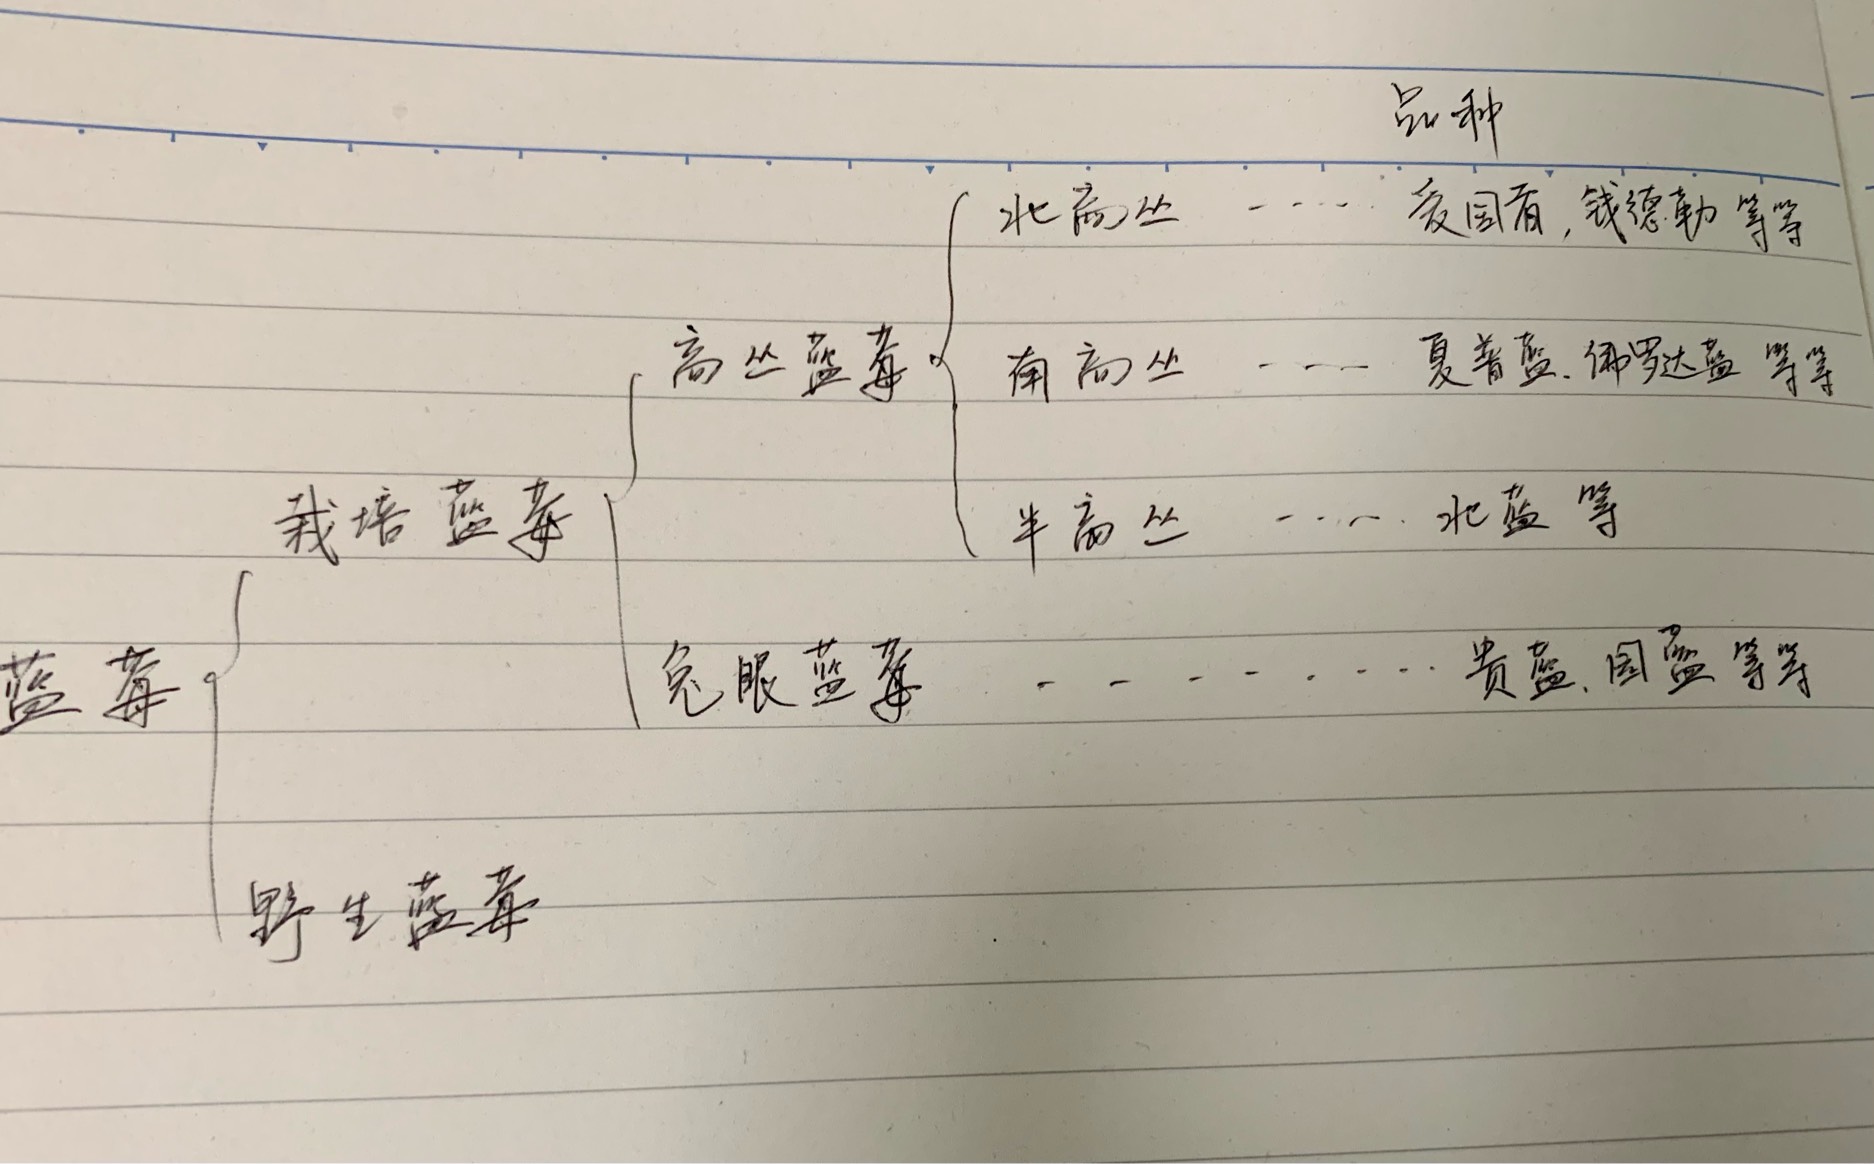 品种
北高丛 ---- 爱国者,钱德勒等等
高丛蓝莓
南高丛 ---- 夏普蓝、佛罗达蓝等等
栽培蓝莓
半高丛 ---- 北蓝等
蓝莓
兔眼蓝莓 -------- 贵蓝、园蓝等等
野生蓝莓